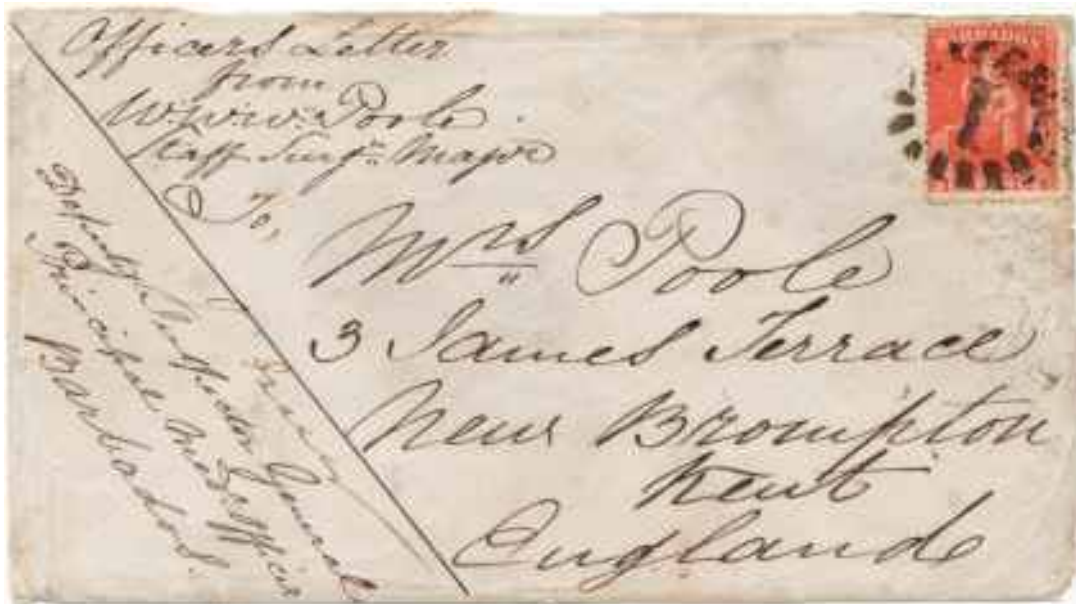 Officers Letter
from
W.W.W. Poole.
Staff Surgn. Major
To,
Mrs Poole
3 James Terrace
New Brompton
Kent
England
Deputy General
Principal Med Officer
Barbados.
BARBADOS
1